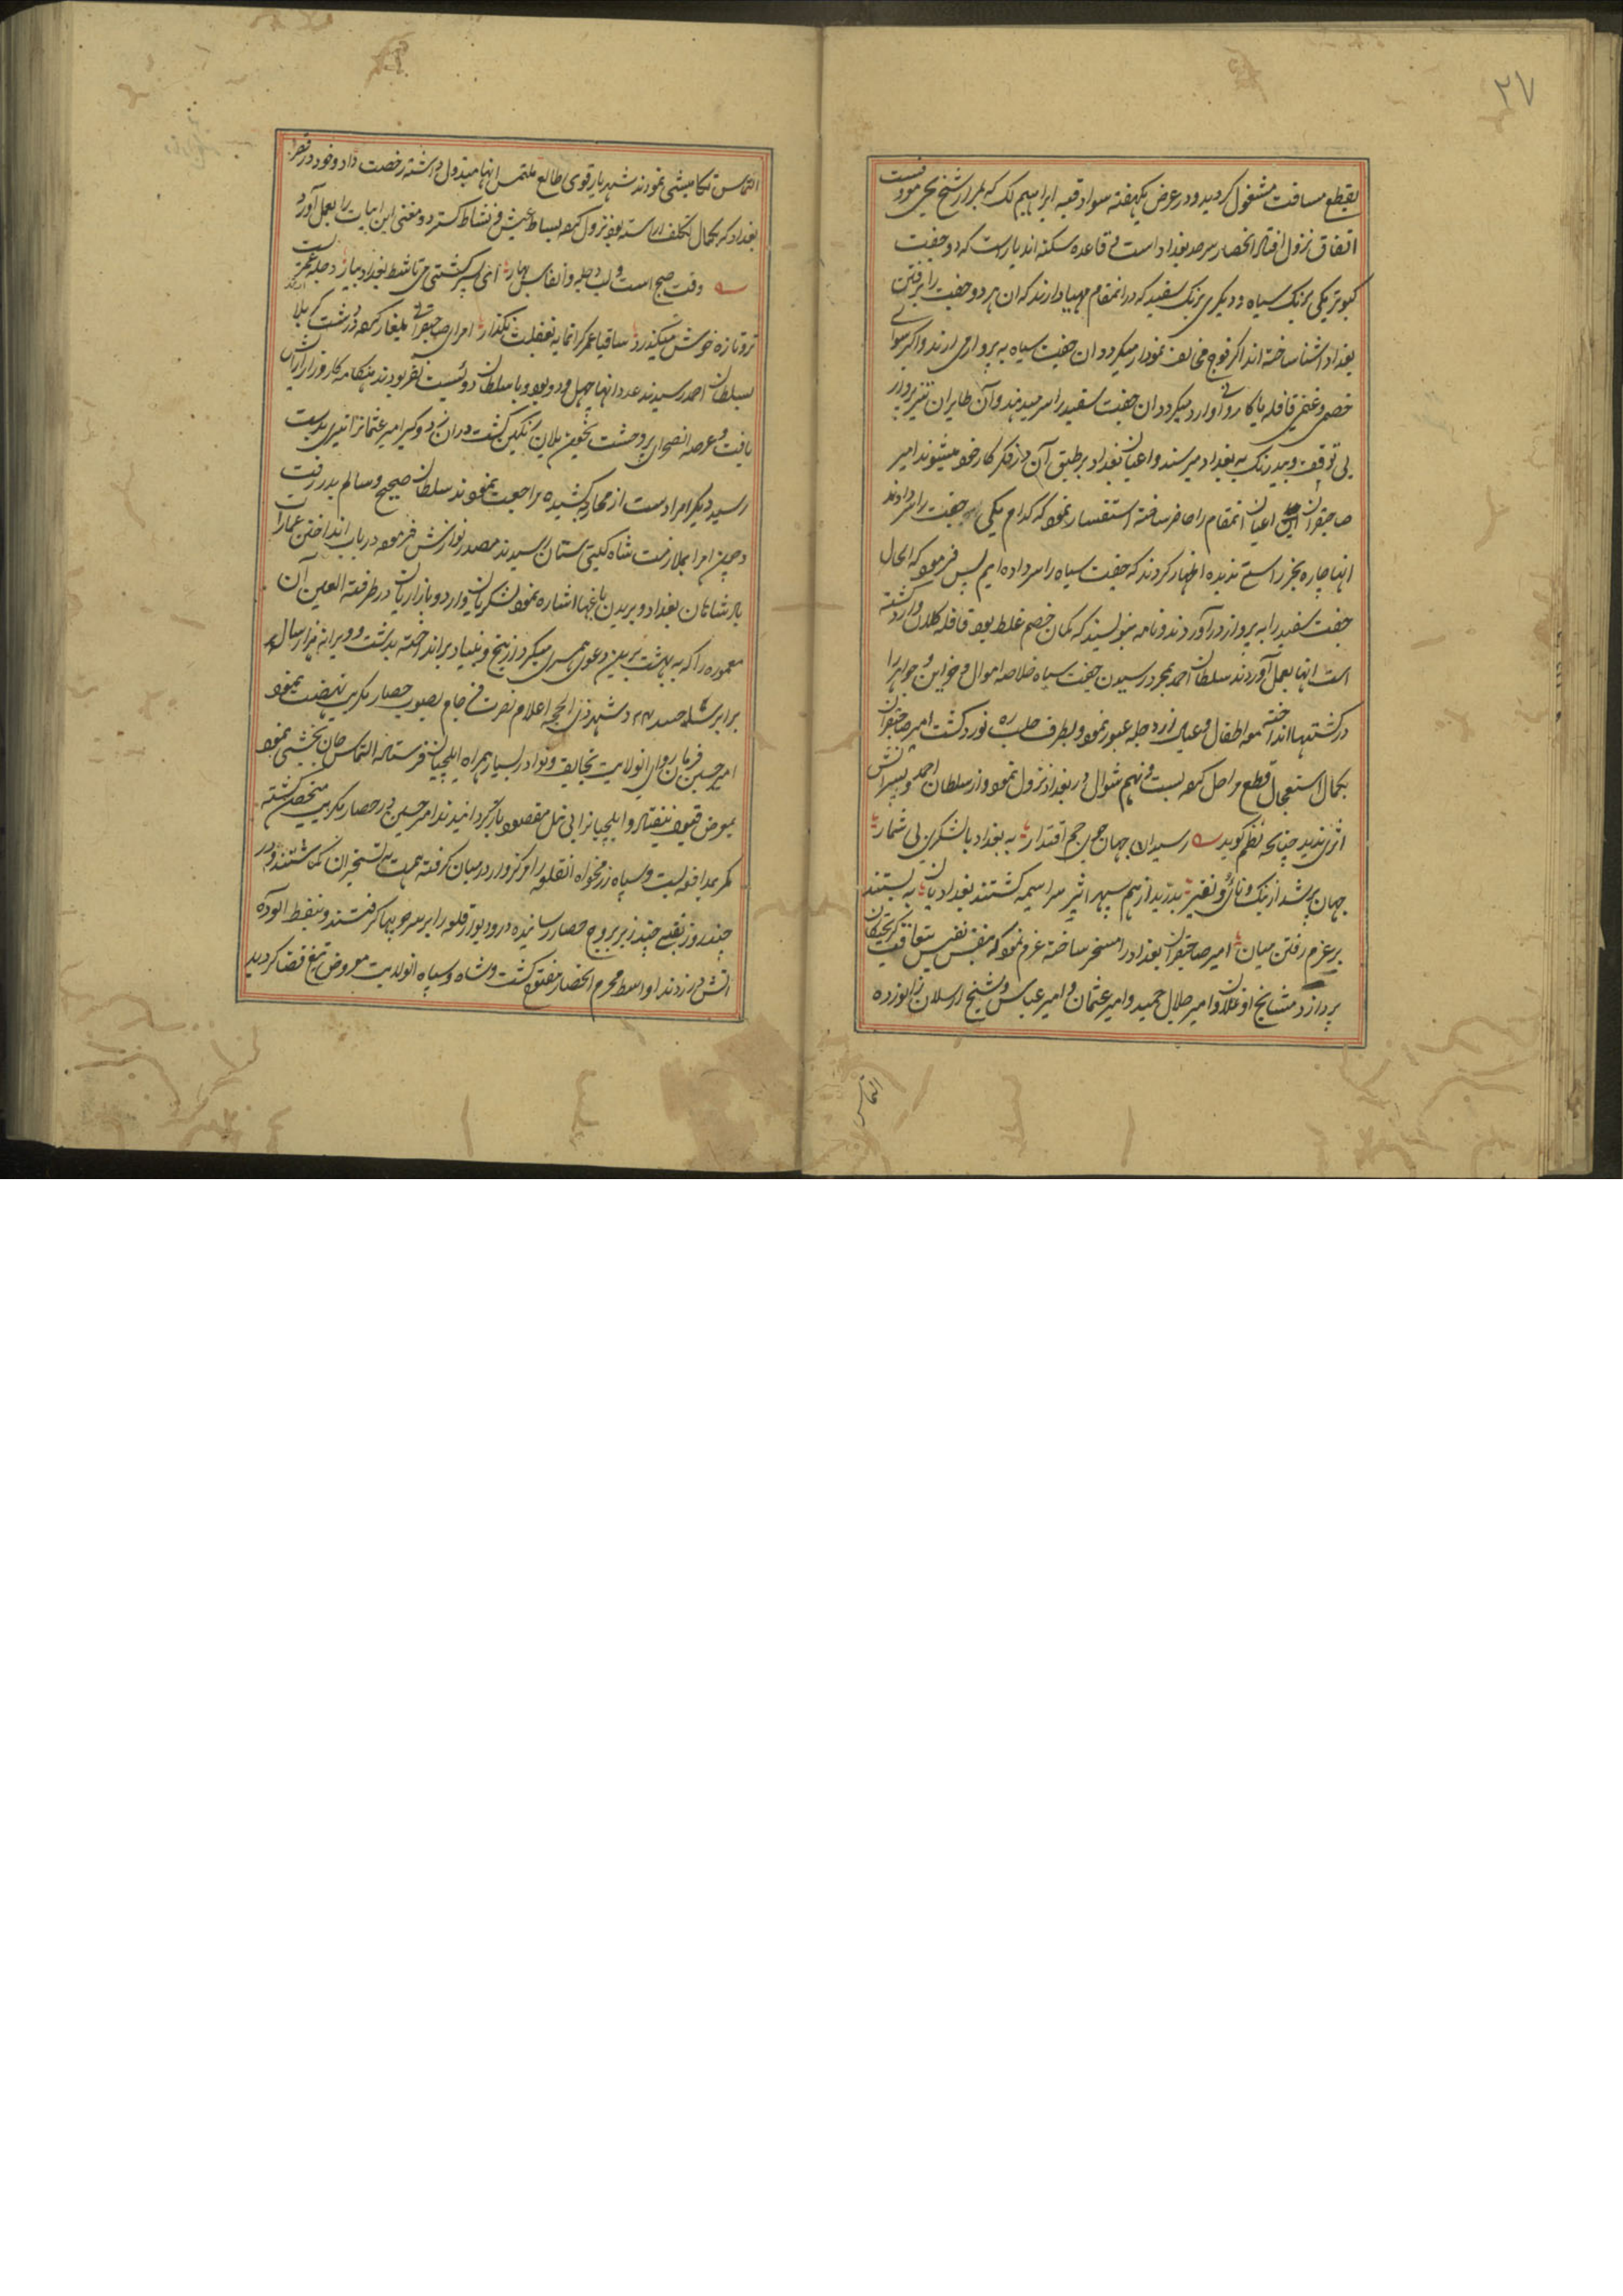 ۲۷
بقطع مسافت مشغول کردید و در عرض یکهفته سواد قبه ابراهیم لک که بمزار شیخ یحیی موسوم است
اتفاق نزول افتاد انحصار سرحد بغداد است و قاعده سکنه اندیار است که دو جفت
کبوتر یکی برنک سیاه و دیکری برنک سفید که در انمقام مهیا دارند که ان هر دو جفت را برفتن
بغداد اشنا ساخته اند اکر فوج مخالف نمودار میکردد ان جفت سیاه به پرواز می ارند و اکر سوای
خصمی و غنمی قافله یا کاروانی وارد میکردد ان جفت سفید را سر میدهند و آن طایران تیز پرواز
بی توقف و بیدرنک به بغداد میرسند و اعیان بغداد بر طبق آن در فکر کار خود میشوند امیر
صاحبقران اعیان انمقام را حاضر ساخته استفسار نمود که کدام یکی جفت را سر دادند
انها چاره بجز راستی ندیده اظهار کردند که جفت سیاه را سر داده ایم پس فرمود که الحال
جفت سفید را به پرواز در آوردند و نامه بنویسند که کمان خصم غلط بود قافله کلان وارد کشته
است انها بعمل آوردند سلطان احمد بمجرد رسیدن جفت سیاه خلاصه اموال و خزاین و جواهر را
در کشتیها انداخته مع اطفال و عیال از دجله عبور نمود و بطرف حله ره نورد کشت امیر صاحبقران
بکمال استعجال قطع مراحل کرده بیست و نهم شوال در بغداد نزول نمود و از سلطان احمد و پسرانش
اثری ندید چنانچه نظم کوید رسید ان جهان جوی جم اقتدار به بغداد با لشکری بی شمار
جهان پر شد از بنک و نای و نفیر بدرید از هم سپهر اثیر سراسیمه کشتند بغدادیان به بستند
بر عزم رفتن میان امیر صاحبقران بغداد را مسخر ساخته عزم نمود که بنفس نفیس بتعاقب کریختکان
پردازد مشایخ اوغلان و امیر جلال حمید و امیر عثمان و امیر عباس و شیخ ارسلان زانو زده
التماس
التماس تکامیشی نمودند شهریار قوی طالع ملتمس انها مبذول داشته رخصت داد و خود در قصر
بغداد که بکمال تکلف اراسته بود نزول کرده بساط عیش و نشاط کسترد و معنی این ابیات را بعمل آورد
وقت صبح است و لب دجله و انفاس بهار ای پسر کشتی می تا شط بغداد بیار دجله عمریست
تر و تازه خوش میکذرد ساقیا عمر کرانمایه بغفلت مکذار امرای صاحبقرانی یلغار کرده در دشت کربلا
بسلطان احمد رسیدند عدد انها چهل و دو بود و با سلطان دوئیست نفر بودند هنکامه کارزار ارایش
یافت و عرصه انصحرای پر وحشت بخون یلان رنکین کشت دران زد و کیر امیر عثمانرا تیری بدست
رسید دیکر امرا دست از محاربه کشیده مراجعت نمودند سلطان صحیح و سالم بدر رفت
و چون امرا بملازمت شاه کیتی ستان رسیدند مصدر نوازش فرمود در باب انداختن عمارات
بادشاهان بغداد و بریدن باغها اشاره نمود لشکریان و اردو بازاریان در طرفة العین آن
معموره را که به بهشت برین دعوی همسری میکرد از بیخ و بنیاد بر انداخته بدشت و ویرانه هزار ساله
برابر ساختند ۲۴ شهر ذی الحجه اعلام نصرت فرجام بصوب حصار تکریت نهضت نمود
امیر حسین فرمان روای انولایت تحایف و نوادر بسیار همراه ایلچیان فرستاده التماس جان بخشی نمود
بمعرض قبول نیفتاد و ایلچیانرا بی نیل مقصود باز کردانیدند امیر حسین در حصار تکریت متحصن کشته
کمر بمدافعه بست و سپاه رزمخواه انقلعه را مرکزوار در میان کرفته همت به تسخیر ان کماشتند و در
چند روز نقبی چند زیر بروج حصار رسانیده در و دیوار قلعه را بر سر چوبها کرفتند و بنفط الوده
اتش در زدند اواسط محرم انحصار مفتوح کشت و شاه و سپاه انولایت معروض تیغ قضا کردید